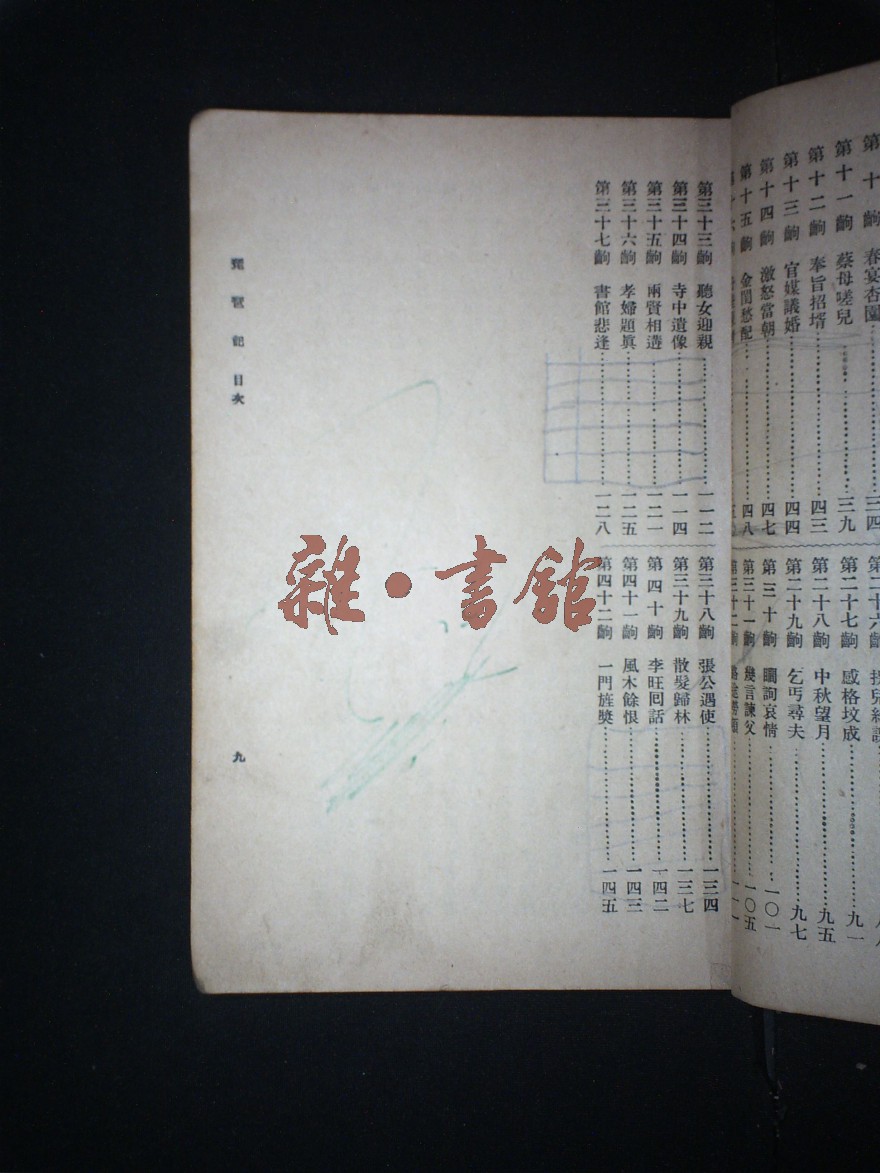 第十齣 春宴杏園 三四
第十一齣 蔡母嗟兒 三九
第十二齣 奉旨招壻 四三
第十三齣 官媒議婚 四四
第十四齣 激怒當朝 四七
第十五齣 金閨愁配 四八
第二十六齣
第二十七齣 感格坟成 九一
第二十八齣 中秋望月 九五
第二十九齣 乞丐尋夫 九七
第三十齣 瞷詢哀情 一〇一
第三十一齣 幾言諫父 一〇五
第三十二齣
第三十三齣 聽女迎親 一一二
第三十四齣 寺中遺像 一一四
第三十五齣 兩賢相遘 一二一
第三十六齣 孝婦題眞 一二五
第三十七齣 書館悲逢 一二八
第三十八齣 張公遇使 一三四
第三十九齣 散髮歸林 一三七
第四十齣 李旺囘話 一四二
第四十一齣 風木餘恨 一四三
第四十二齣 一門旌奬 一四五
琵琶記 目次
九
雜·書館